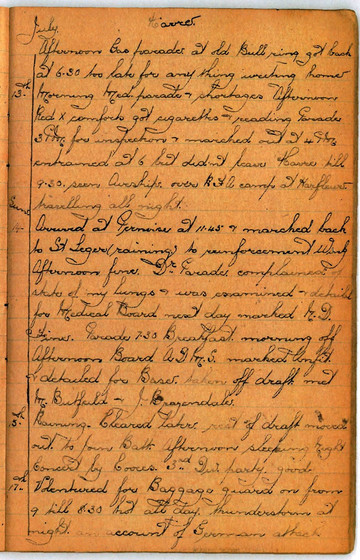 July Havre
Afternoon Gas parade at old Bull ring got back
at 6.30 too late for any thing writing home
13th Morning Medl parade & shortages Afternoon
Red X comforts got cigarettes & reading Parade
3 PM for inspection & marched out at 4 PM
entrained at 6 but didn't leave Havre till
9.30. seen Airship over R.F.A camp at Harfleur
travelling all night
Arrived at at 11.45 & marched back
to St Leger (raining) to reinforcement
Afternoon fine. Dr Parade complained of
state of my lungs & was examined & detailed
for Medical Board next day marked M.D
Fine. Parade 7.30 Breakfast. morning off
Afternoon Board A.D.M.S. marked Unfit
& detailed for Base. taken off draft met
M. & J. Brazendale.
Raining. Cleared later rest of draft moved
out to join Batt afternoon sleeping Night
Concert by Cooes. 3rd Div party. good
17th Volentured for Baggage guard on from
9 till 8.30 hot all day. thunderstorm at
night. account of German attack